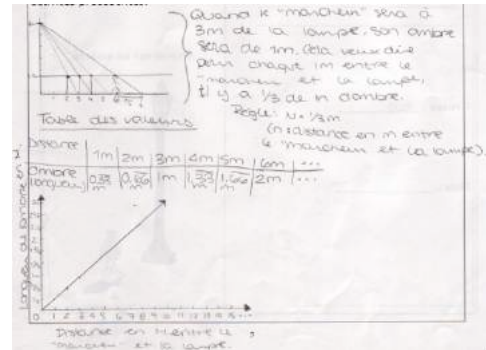 Quand le "marcheur" sera à
3m de la lampe, son ombre
sera de 1m. Cela veut dire
pour chaque 1m entre le
"marcheur et la lampe,
il y a 1/3 de m d'ombre.
Règle: N× 1/3m
(n=distance en m entre
le "marcheur et la lampe).
1 2 3 4 5 6
Table des valeurs
Distance 1m 2m 3m 4m 5m 6m ...
Ombre (longueur) 0,33 m 0,666 m 1m 1,33 m 1,666 m 2m ...
Longueur de l'ombre en
0 1 2 3 4 5 6 7 8 9 10 11 12 13 14 15 ...
Distance en m entre le
"marcheur" et la lampe.